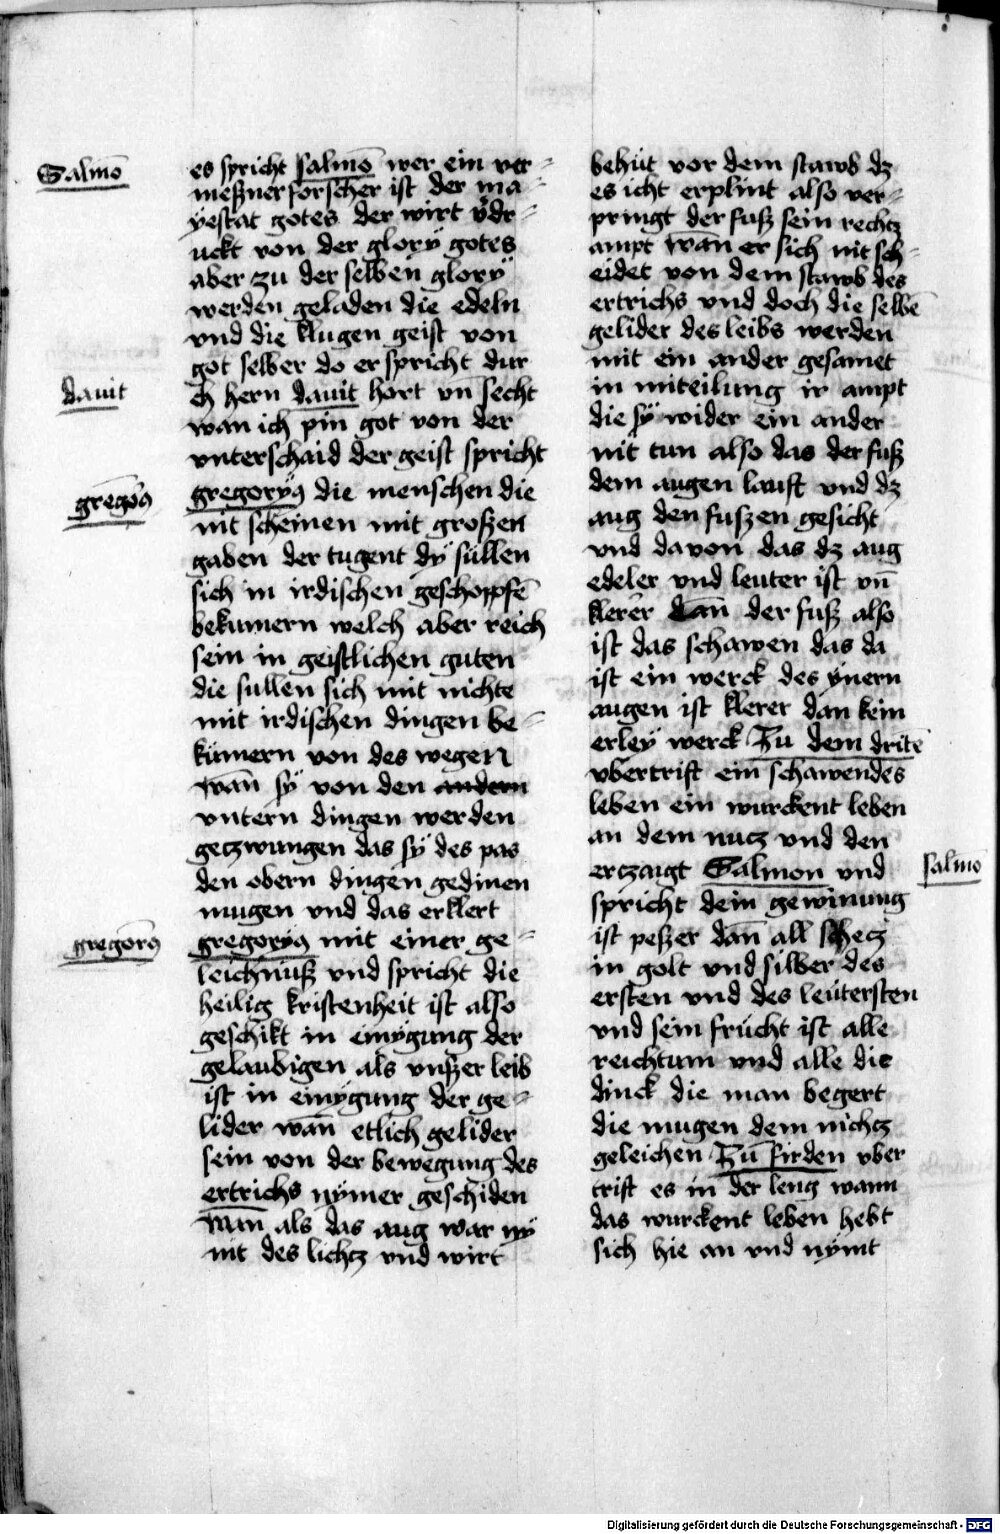 Salmō
es spricht salmō wer ein ver-
meßner forscher ist der ma-
yestat gotes der wirt v̈dr-
uckt von der glory gotes
aber zu der selben glorÿ
werden geladen die edeln
vnd die klugen geist von
got selber do er spricht dur
dauit
ch hern dauit hort vn secht
wan ich pin got von der
vnterschaid der geist spricht
gregorꝰ
gregoryꝰ die menschen die
nit scheinen mit großen
gaben der tugent dÿ sullen
sich in irdischen geschoppfē
bekumern welch aber reich
sein in geistlichen guten
die sullen sich mit nichte
mit irdischen dingen be-
kümern von des wegen
wān sÿ von den andern
vntern dingen werden
getzwungen das sÿ des pas
den obern dingen gedinen
mugen vnd das erklert
gregorꝰ
gregoryꝰ mit einer ge-
leichnuß vnd spricht die
heilig kristenheit ist also
geschikt in einÿgung der
gelaubigen als vnßer leib
ist in einÿgung der ge-
lider wān etlich gelider
sein von der bewegung des
ertrichs nÿmer geschiden
wān als das aug war nÿ
mt des lichtz vnd wirt
behüt vor dem stawb dz
es icht erplint also ver-
pringt der fuß sein rechtz
ampt wān er sich nit sch-
eidet von dem stawb des
ertrichs vnd doch die selbē
gelider des leibs werden
mit ein ander gesamet
in miteilung ir ampt
die sÿ wider ein ander
nit tun also das der fuß
dem augen lauft vnd dz
aug den fuszen gesicht
vnd davon das dz aug
edeler vnd leuter ist vn̄
klerer dān der fuß also
ist das schawen das da
ist ein werck des ÿnern
augen ist klerer dan kein
erleÿ werck Zu dem dritē
vbertrift ein schawendes
leben ein wurckent leben
an dem nutz vnd den
salmō
ertzaigt Salmon vnd
spricht dein gewinung
ist peßer dān all schetz
in golt vnd silber des
ersten vnd des leütersten
vnd sein frücht ist alle
reichtum vnd alle die
dinck die man begert
die mugen dem nichtz
geleichen Zū firden vber
trift es in der leng wann
das wurckent leben hebt
sich hie an vnd nÿmt
Digitalisierung gefördert durch die Deutsche Forschungsgemeinschaft - DFG